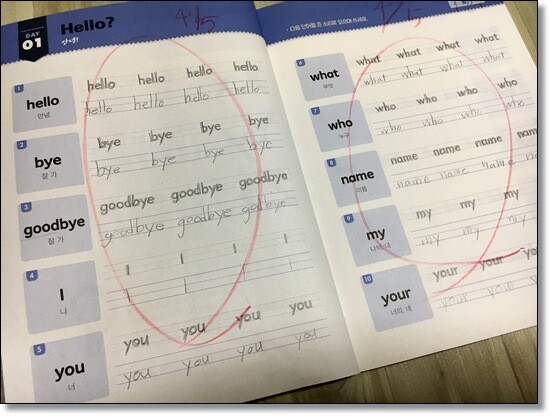 DAY
01
Hello?
안녕!
4/5
1
hello
안녕
hello hello hello hello
hello hello hello hello
2
bye
잘 가
bye bye bye bye
bye bye bye bye
3
goodbye
잘 가
goodbye goodbye goodbye
goodbye goodbye goodbye
4
I
나
I I I I
I I I I
5
you
너
you you you you
you you you you
4/5
• 다음 단어를 큰 소리로 읽으며 쓰세요.
6
what
무엇
what what what what
what what what what
7
who
누구
who who who who
who who who who
8
name
이름
name name name name
name name name name
9
my
나의, 내
my my my
my my my
10
your
너의, 네
your your your
your your your